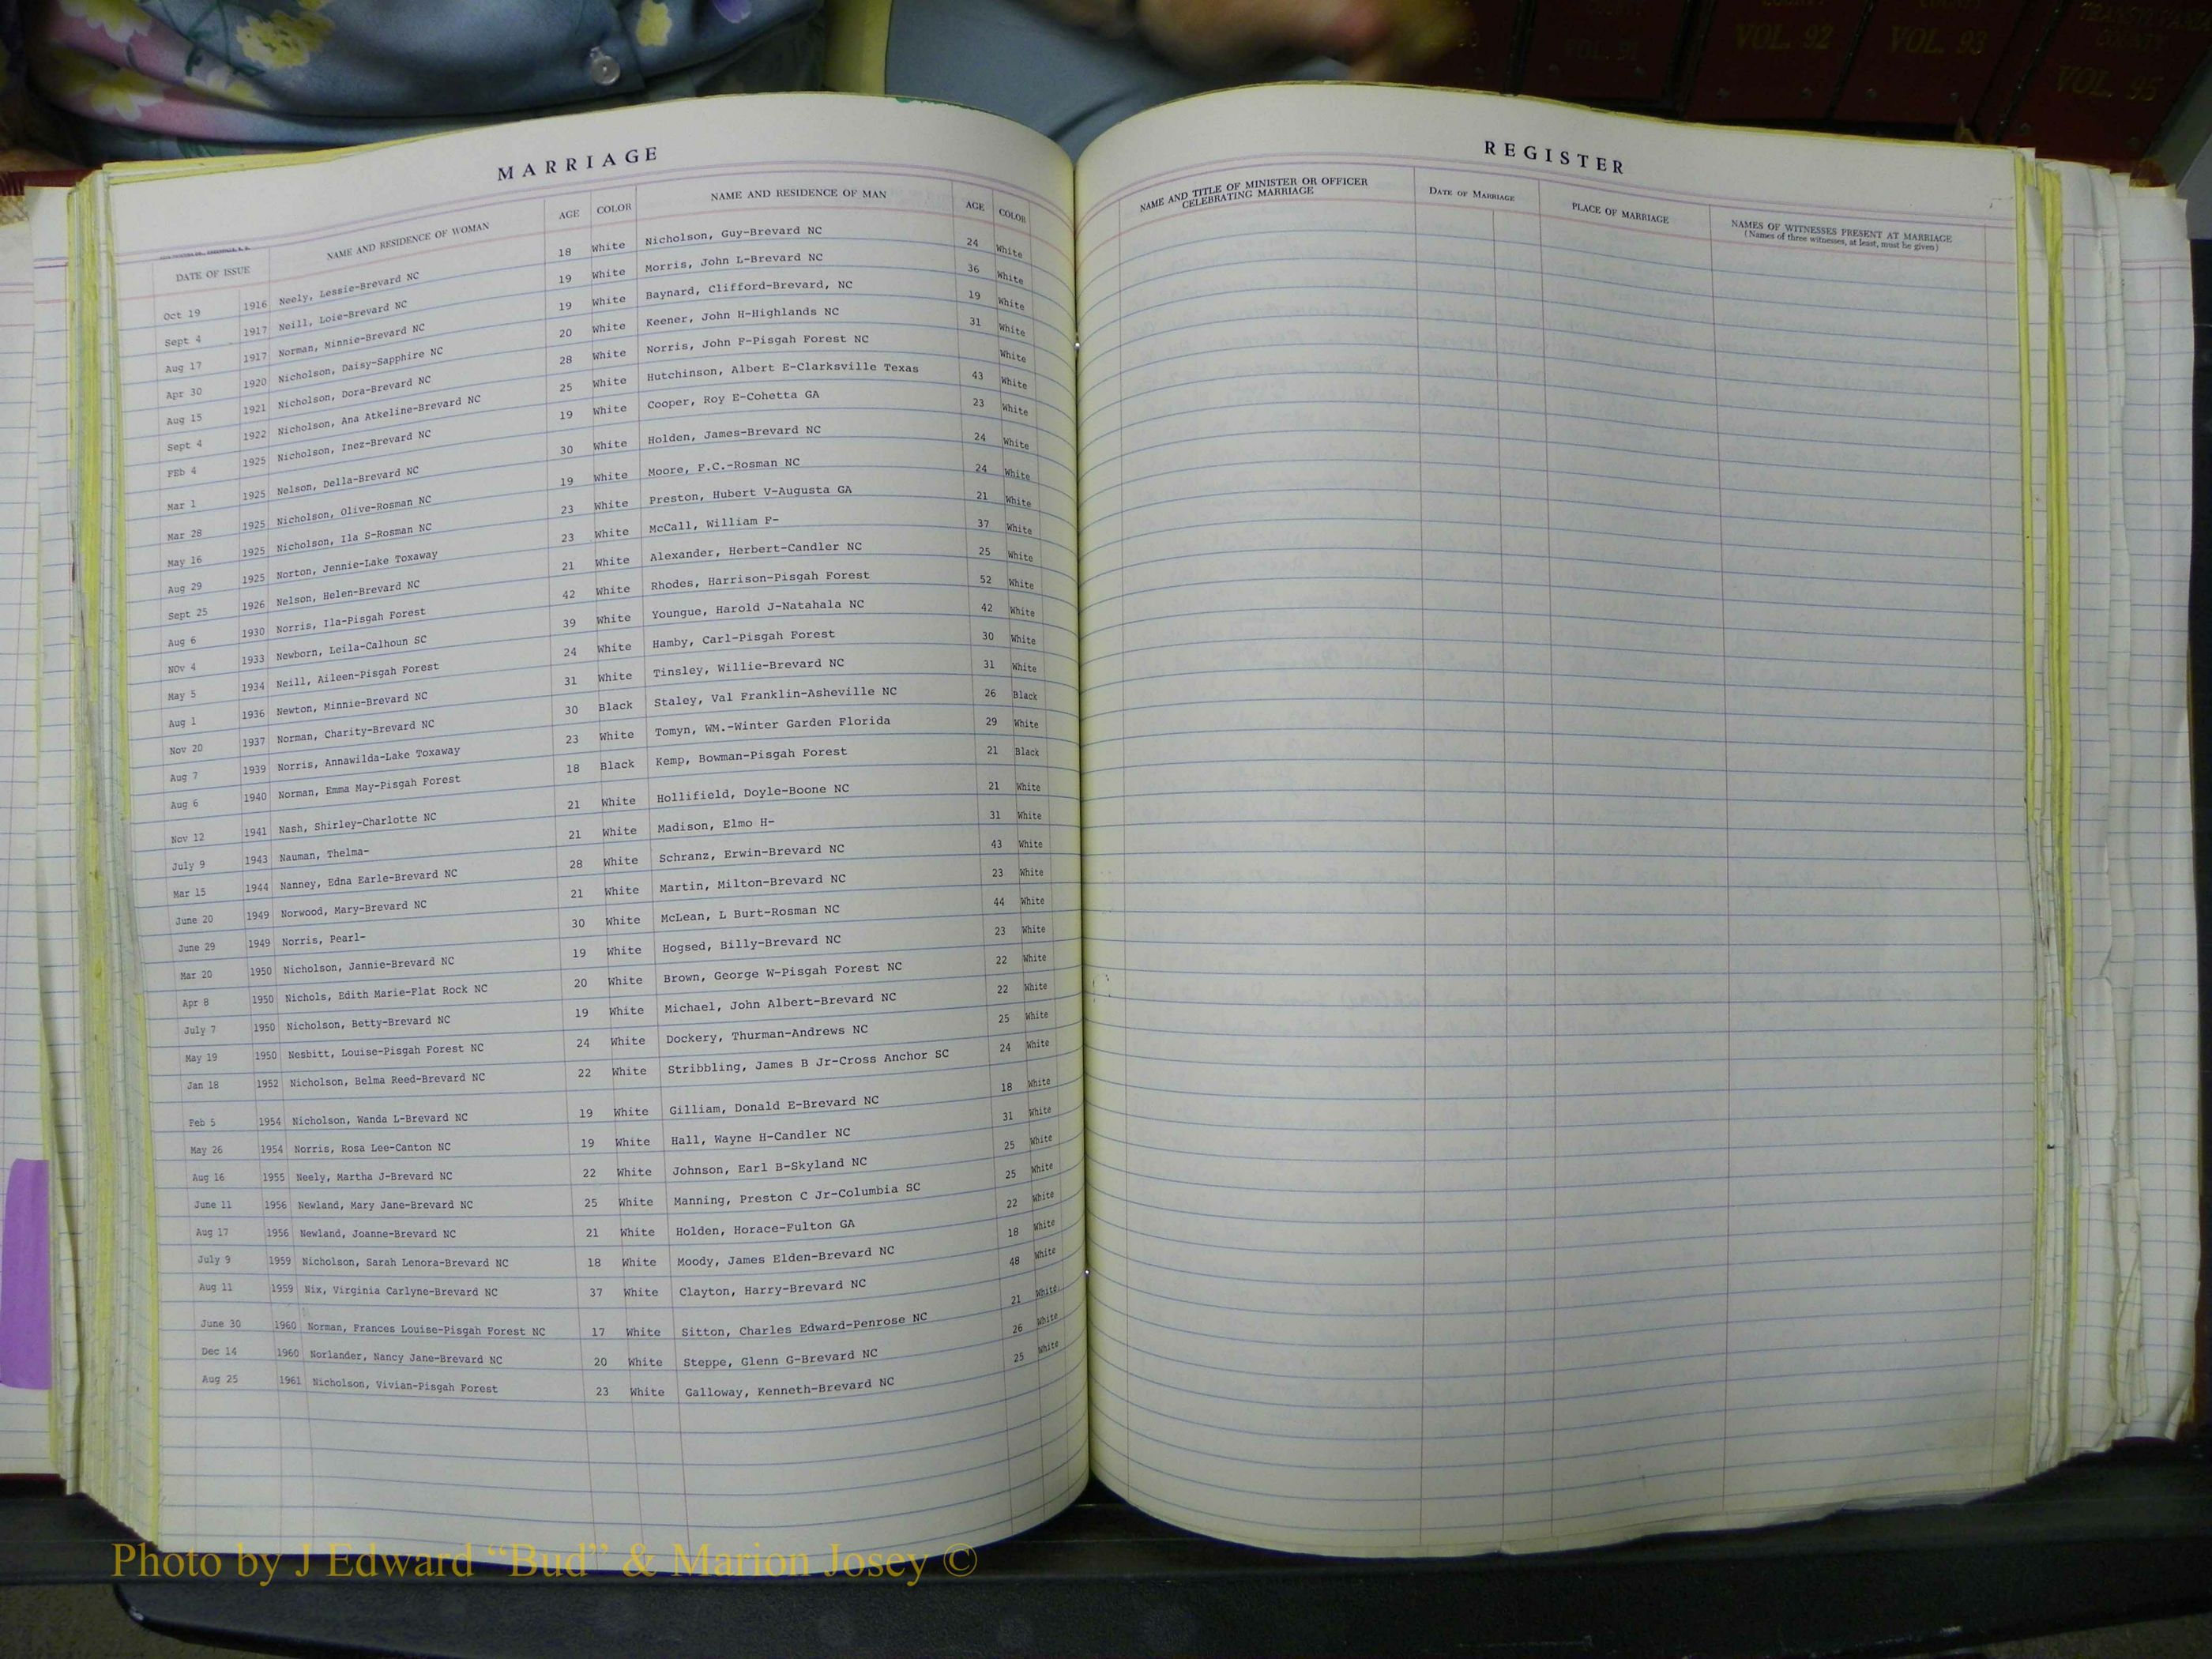 COUNTY
VOL. 92
COUNTY
VOL. 93
TRANSYLVANIA
COUNTY
VOL. 95
MARRIAGE
DATE OF ISSUE NAME AND RESIDENCE OF WOMAN AGE COLOR NAME AND RESIDENCE OF MAN AGE COLOR
Oct 19 1916 Neely, Lessie-Brevard NC 18 White Nicholson, Guy-Brevard NC 24 White
Sept 4 1917 Neill, Loie-Brevard NC 19 White Morris, John L-Brevard NC 36 White
Aug 17 1917 Norman, Minnie-Brevard NC 19 White Baynard, Clifford-Brevard, NC 19 White
Apr 30 1920 Nicholson, Daisy-Sapphire NC 20 White Keener, John H-Highlands NC 31 White
Aug 15 1921 Nicholson, Dora-Brevard NC 28 White Norris, John F-Pisgah Forest NC White
Sept 4 1922 Nicholson, Ana Atkeline-Brevard NC 25 White Hutchinson, Albert E-Clarksville Texas 43 White
FEb 4 1925 Nicholson, Inez-Brevard NC 19 White Cooper, Roy E-Cohetta GA 23 White
Mar 1 1925 Nelson, Della-Brevard NC 30 White Holden, James-Brevard NC 24 White
Mar 28 1925 Nicholson, Olive-Rosman NC 19 White Moore, F.C.-Rosman NC 24 White
May 16 1925 Nicholson, Ila S-Rosman NC 23 White Preston, Hubert V-Augusta GA 21 White
Aug 29 1925 Norton, Jennie-Lake Toxaway 23 White McCall, William F- 37 White
Sept 25 1926 Nelson, Helen-Brevard NC 21 White Alexander, Herbert-Candler NC 25 White
Aug 6 1930 Norris, Ila-Pisgah Forest 42 White Rhodes, Harrison-Pisgah Forest 52 White
NOv 4 1933 Newborn, Leila-Calhoun SC 39 White Youngue, Harold J-Natahala NC 42 White
May 5 1934 Neill, Aileen-Pisgah Forest 24 White Hamby, Carl-Pisgah Forest 30 White
Aug 1 1936 Newton, Minnie-Brevard NC 31 White Tinsley, Willie-Brevard NC 31 White
Nov 20 1937 Norman, Charity-Brevard NC 30 Black Staley, Val Franklin-Asheville NC 26 Black
Aug 7 1939 Norris, Annawilda-Lake Toxaway 23 White Tomyn, WM.-Winter Garden Florida 29 White
Aug 6 1940 Norman, Emma May-Pisgah Forest 18 Black Kemp, Bowman-Pisgah Forest 21 Black
Nov 12 1941 Nash, Shirley-Charlotte NC 21 White Hollifield, Doyle-Boone NC 21 White
July 9 1943 Nauman, Thelma- 21 White Madison, Elmo H- 31 White
Mar 15 1944 Nanney, Edna Earle-Brevard NC 28 White Schranz, Erwin-Brevard NC 43 White
June 20 1949 Norwood, Mary-Brevard NC 21 White Martin, Milton-Brevard NC 23 White
June 29 1949 Norris, Pearl- 30 White McLean, L Burt-Rosman NC 44 White
Mar 20 1950 Nicholson, Jannie-Brevard NC 19 White Hogsed, Billy-Brevard NC 23 White
Apr 8 1950 Nichols, Edith Marie-Flat Rock NC 20 White Brown, George W-Pisgah Forest NC 22 White
July 7 1950 Nicholson, Betty-Brevard NC 19 White Michael, John Albert-Brevard NC 22 White
May 19 1950 Nesbitt, Louise-Pisgah Forest NC 24 White Dockery, Thurman-Andrews NC 25 White
Jan 18 1952 Nicholson, Belma Reed-Brevard NC 22 White Stribbling, James B Jr-Cross Anchor SC 24 White
Feb 5 1954 Nicholson, Wanda L-Brevard NC 19 White Gilliam, Donald E-Brevard NC 18 White
May 26 1954 Norris, Rosa Lee-Canton NC 19 White Hall, Wayne H-Candler NC 31 White
Aug 16 1955 Neely, Martha J-Brevard NC 22 White Johnson, Earl B-Skyland NC 25 White
June 11 1956 Newland, Mary Jane-Brevard NC 25 White Manning, Preston C Jr-Columbia SC 25 White
Aug 17 1956 Newland, Joanne-Brevard NC 21 White Holden, Horace-Fulton GA 22 White
July 9 1959 Nicholson, Sarah Lenora-Brevard NC 18 White Moody, James Elden-Brevard NC 18 White
Aug 11 1959 Nix, Virginia Carlyne-Brevard NC 37 White Clayton, Harry-Brevard NC 48 White
June 30 1960 Norman, Frances Louise-Pisgah Forest NC 17 White Sitton, Charles Edward-Penrose NC 21 White
Dec 14 1960 Norlander, Nancy Jane-Brevard NC 20 White Steppe, Glenn G-Brevard NC 26 White
Aug 25 1961 Nicholson, Vivian-Pisgah Forest 23 White Galloway, Kenneth-Brevard NC 25 White
REGISTER
NAME AND TITLE OF MINISTER OR OFFICER CELEBRATING MARRIAGE
DATE OF MARRIAGE
PLACE OF MARRIAGE
NAMES OF WITNESSES PRESENT AT MARRIAGE
(Names of three witnesses, at least, must be given)
Photo by J Edward “Bud” & Marion Josey ©